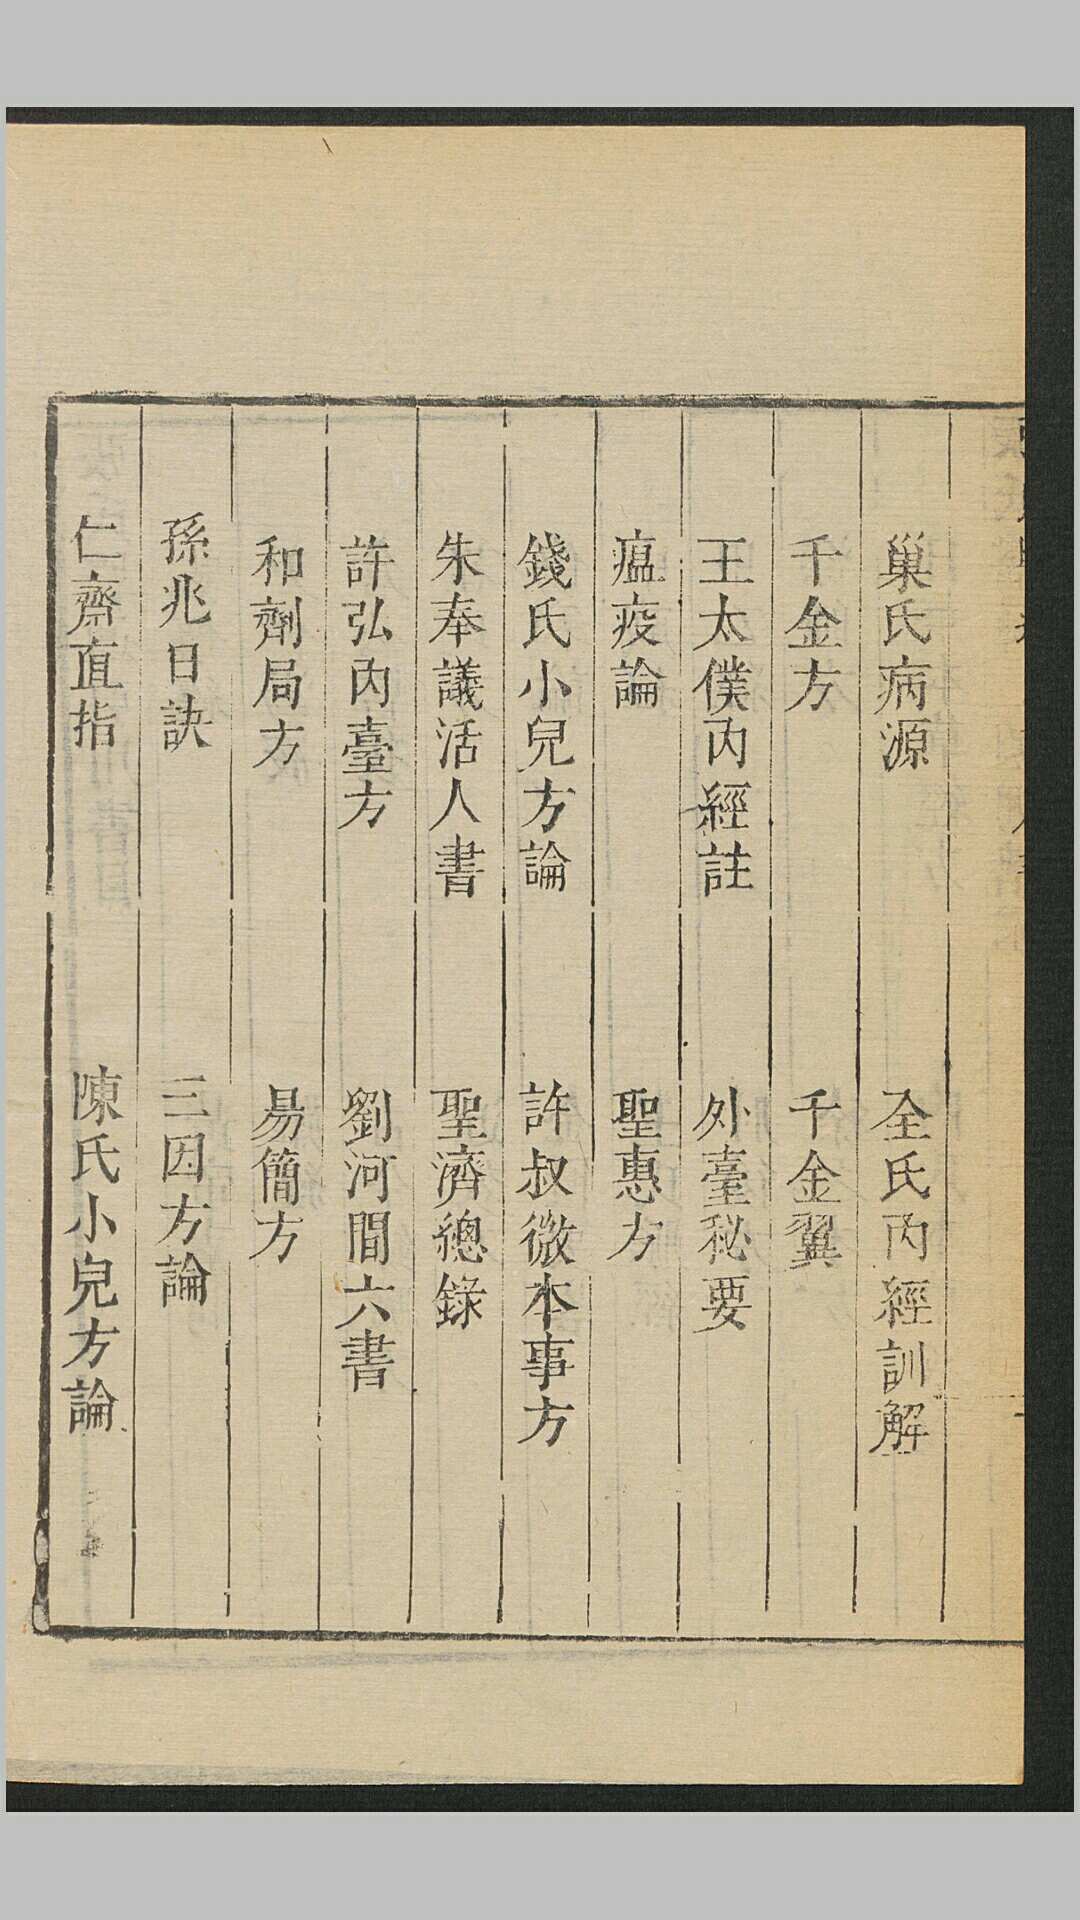 巢氏病源 全氏內經訓解
千金方 千金翼
王太僕內經註 外臺秘要
瘟疫論 聖惠方
錢氏小兒方論 許叔微本事方
朱奉議活人書 聖濟總錄
許弘內臺方 劉河間六書
和劑局方 易簡方
孫兆日訣 三因方論
仁齋直指 陳氏小兒方論